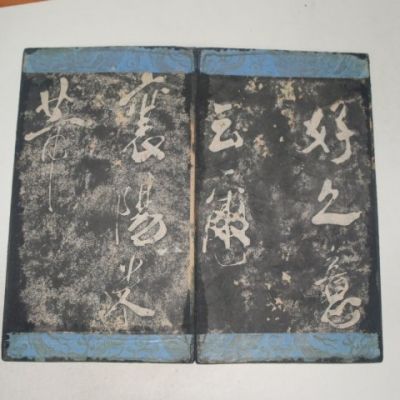 好之意
云爾
襄陽米
芾